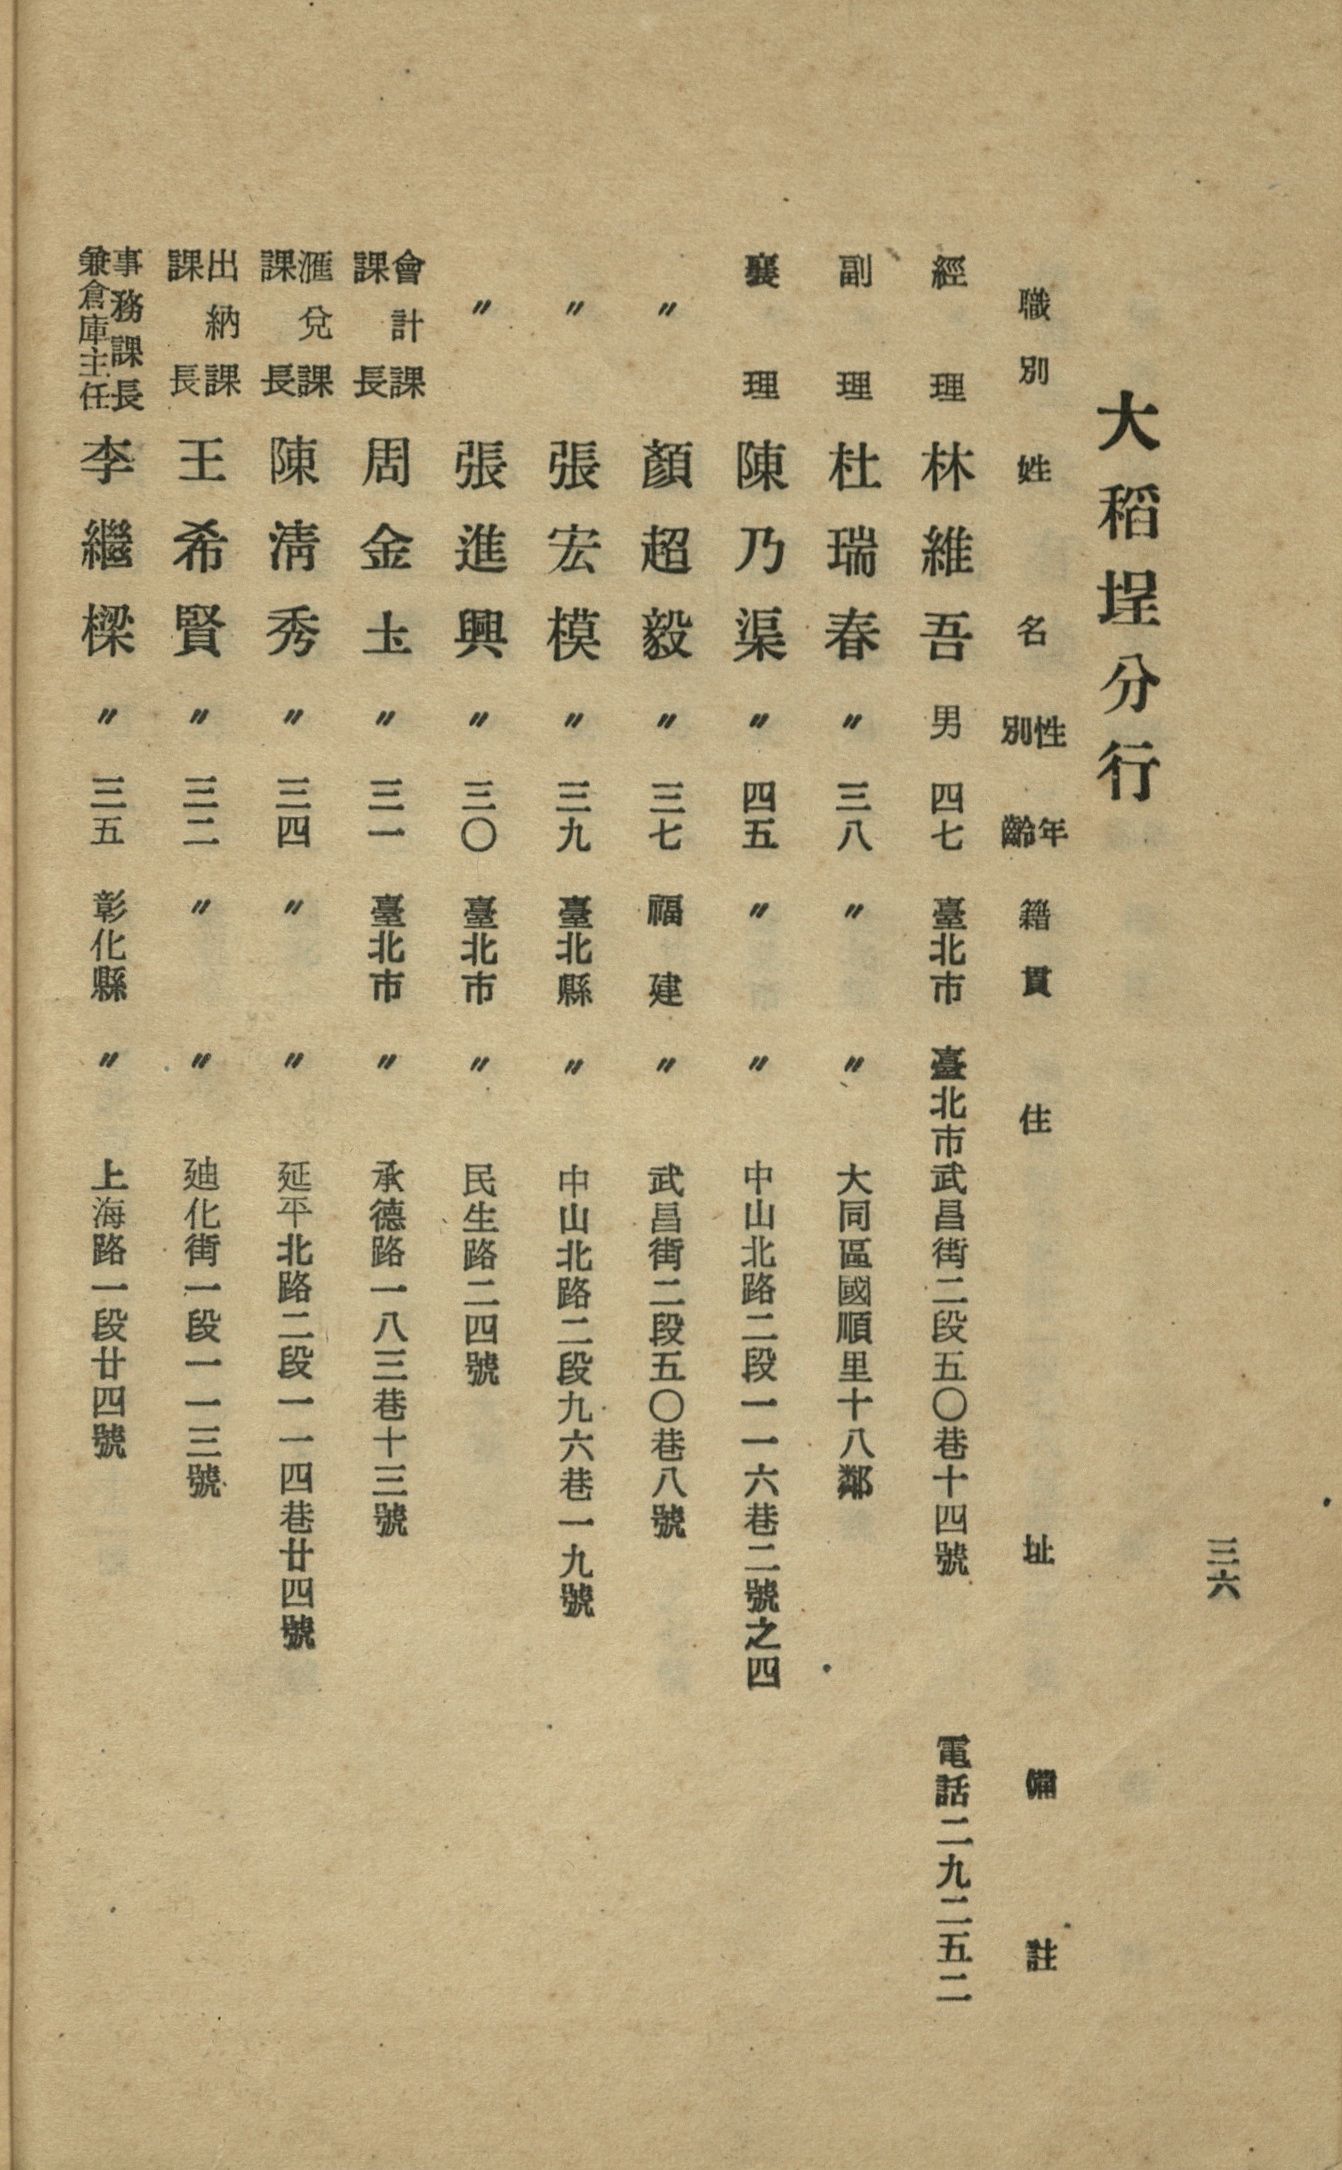 三六
大稻埕分行
職別 姓名 性別 年齡 籍貫 住址 備註
經理 林維吾 男 四七 臺北市 臺北市武昌街二段五〇巷十四號 電話二九二五二
副理 杜瑞春 〃 三八 〃 〃 大同區國順里十八鄰
襄理 陳乃渠 〃 四五 〃 〃 中山北路二段一一六巷二號之四
〃 顏超毅 〃 三七 福建 〃 武昌街二段五〇巷八號
〃 張宏模 〃 三九 臺北縣 〃 中山北路二段九六巷一九號
〃 張進興 〃 三〇 臺北市 〃 民生路二四號
會計課課長 周金圡 〃 三一 臺北市 〃 承德路一八三巷十三號
滙兌課課長 陳清秀 〃 三四 〃 〃 延平北路二段一一四巷廿四號
出納課課長 王希賢 〃 三二 〃 〃 廸化街一段一一三號
事務課長兼倉庫主任 李繼樑 〃 三五 彰化縣 〃 上海路一段廿四號